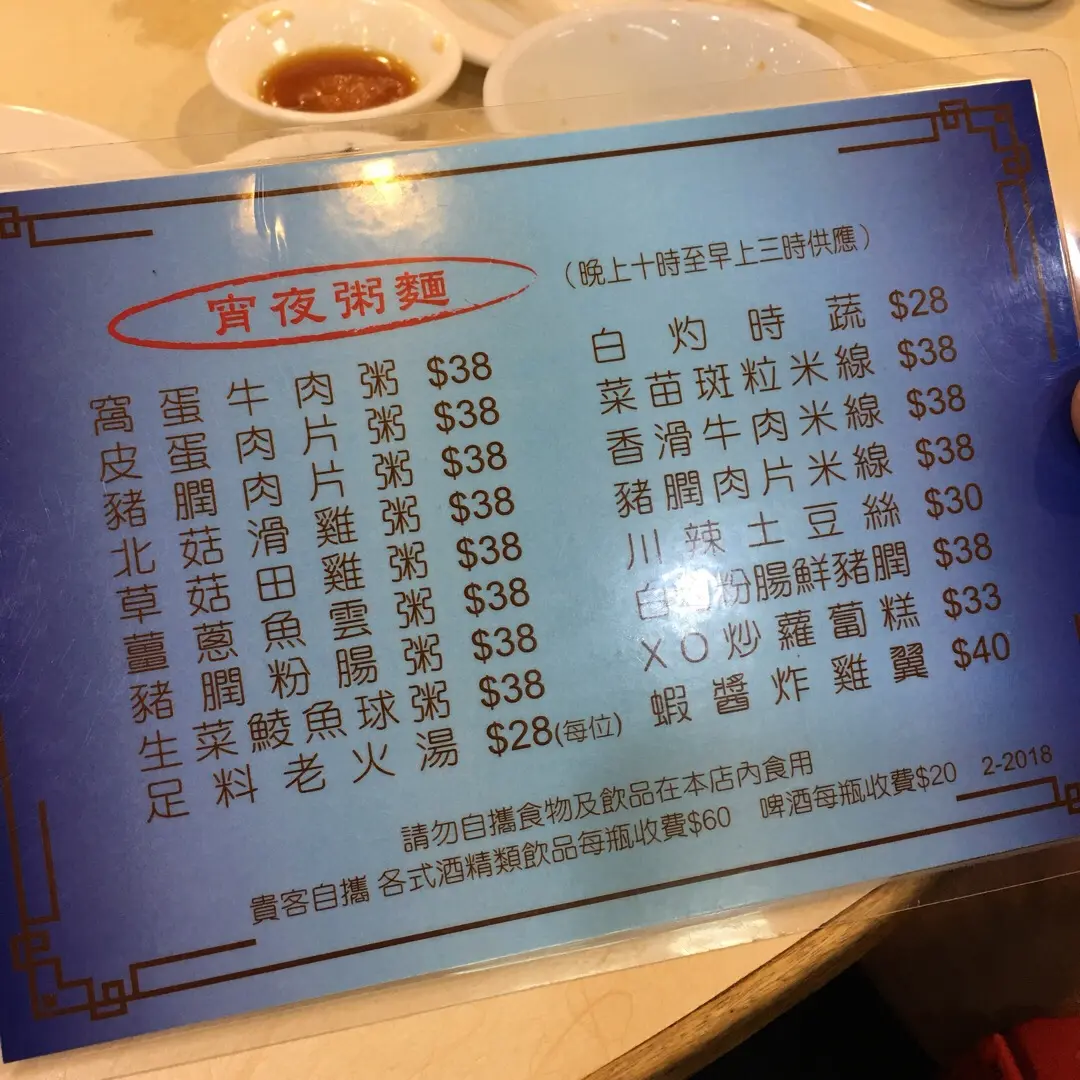 宵夜粥麵
(晚上十時至早上三時供應)
窩蛋牛肉粥 $38
皮蛋肉片粥 $38
豬膶肉片粥 $38
北菇滑雞粥 $38
草菇田雞粥 $38
薑蔥魚雲粥 $38
豬膶粉腸粥 $38
生菜鯪魚球粥 $38
足料老火湯 $28(每位)
白灼時蔬 $28
菜苗斑粒米線 $38
香滑牛肉米線 $38
豬膶肉片米線 $38
川辣土豆絲 $30
白灼粉腸鮮豬膶 $38
XO炒蘿蔔糕 $33
蝦醬炸雞翼 $40
請勿自攜食物及飲品在本店內食用
貴客自攜 各式酒精類飲品每瓶收費$60 啤酒每瓶收費$20 2-2018